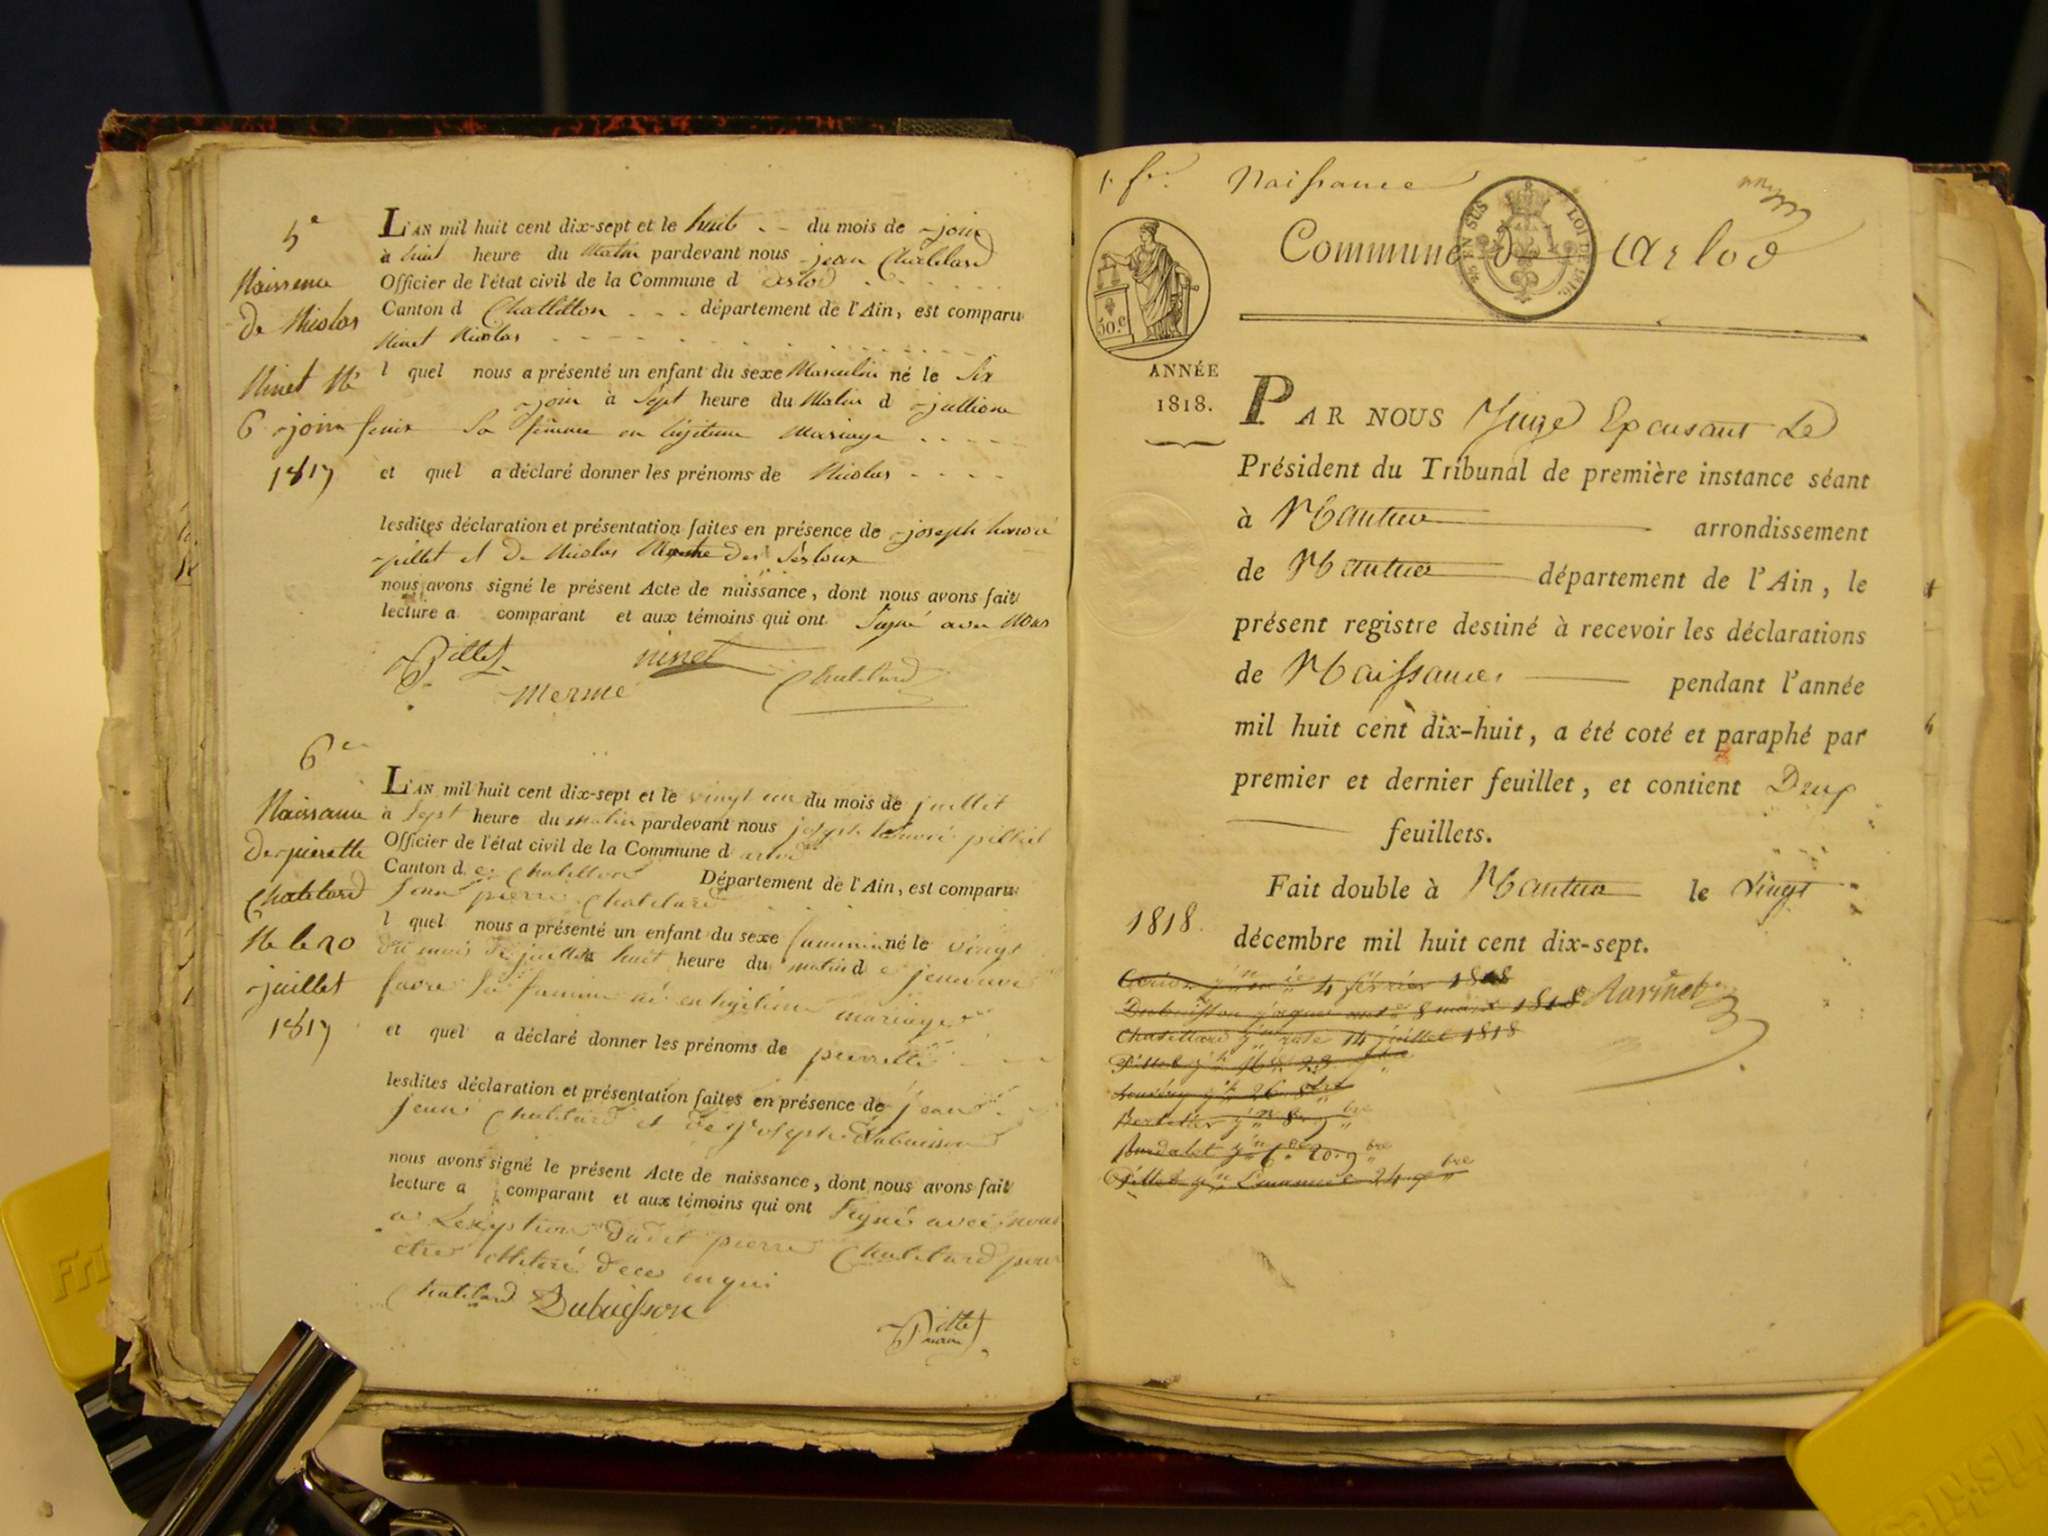 5e
Naissence
de Nicolas
Ninet Né
6 join
1817
L'AN mil huit cent dix-sept et le huit du mois de join
à huit heure du Matin pardevant nous jean Chatelard
Officier de l'état civil de la Commune d arlod
Canton d Chatillon département de l'Ain, est comparu
Ninet Nicolas
l quel nous a présenté un enfant du sexe Masculin né le Six
join à Sept heure du Matin d jullione
Sa femme en légitime Mariage
et quel a déclaré donner les prénoms de Nicolas
lesdites déclaration et présentation faites en présence de joseph honoré
pillet et de Nicolas
nous avons signé le présent Acte de naissance, dont nous avons fait
lecture a comparant et aux témoins qui ont Signé avec Nous
Pillet ninet
merme Chatelard
6e
Naissance
de pierette
Chatelard
Né le 20
juillet
1817
L'AN mil huit cent dix-sept et le vingt un du mois de juillet
à Sept heure du matin pardevant nous joseph honoré pillet
Officier de l'état civil de la Commune d arlod
Canton d e Chatillon Département de l'Ain, est comparu
jean pierre Chatelard
l quel nous a présenté un enfant du sexe feminin né le vingt
du mois de juillet à huit heure du matin d e
favre Sa femme né en légitime mariage
et quel a déclaré donner les prénoms de pierrette
lesdites déclaration et présentation faites en présence de jean
jean Chatelard et de joseph Dubuisson
nous avons signé le présent Acte de naissance, dont nous avons fait
lecture a comparant et aux témoins qui ont Signé avec nous
a Lexeption dudit pierre Chatelard pour
etre de ce
Chatelard Dubuisson
Pillet
maire
1. fr. Naissance
25 EN SUS LOI DE 1816.
Commune d Arlod
50.c
ANNÉE
1818.
PAR NOUS Juge Epousant Le
Président du Tribunal de première instance séant
à Nantua arrondissement
de Nantua département de l'Ain, le
présent registre destiné à recevoir les déclarations
de Naissances pendant l'année
mil huit cent dix-huit, a été coté et paraphé par
premier et dernier feuillet, et contient Deux
feuillets.
Fait double à Nantua le vingt
décembre mil huit cent dix-sept.
1818.
4 février 1818
Dubuisson 8 mars 1818
Chatellard jne rose 14 juillet 1818
Pillet
26 8bre
8 9bre
Burdalet 20 9bre
Pillet 24 9bre